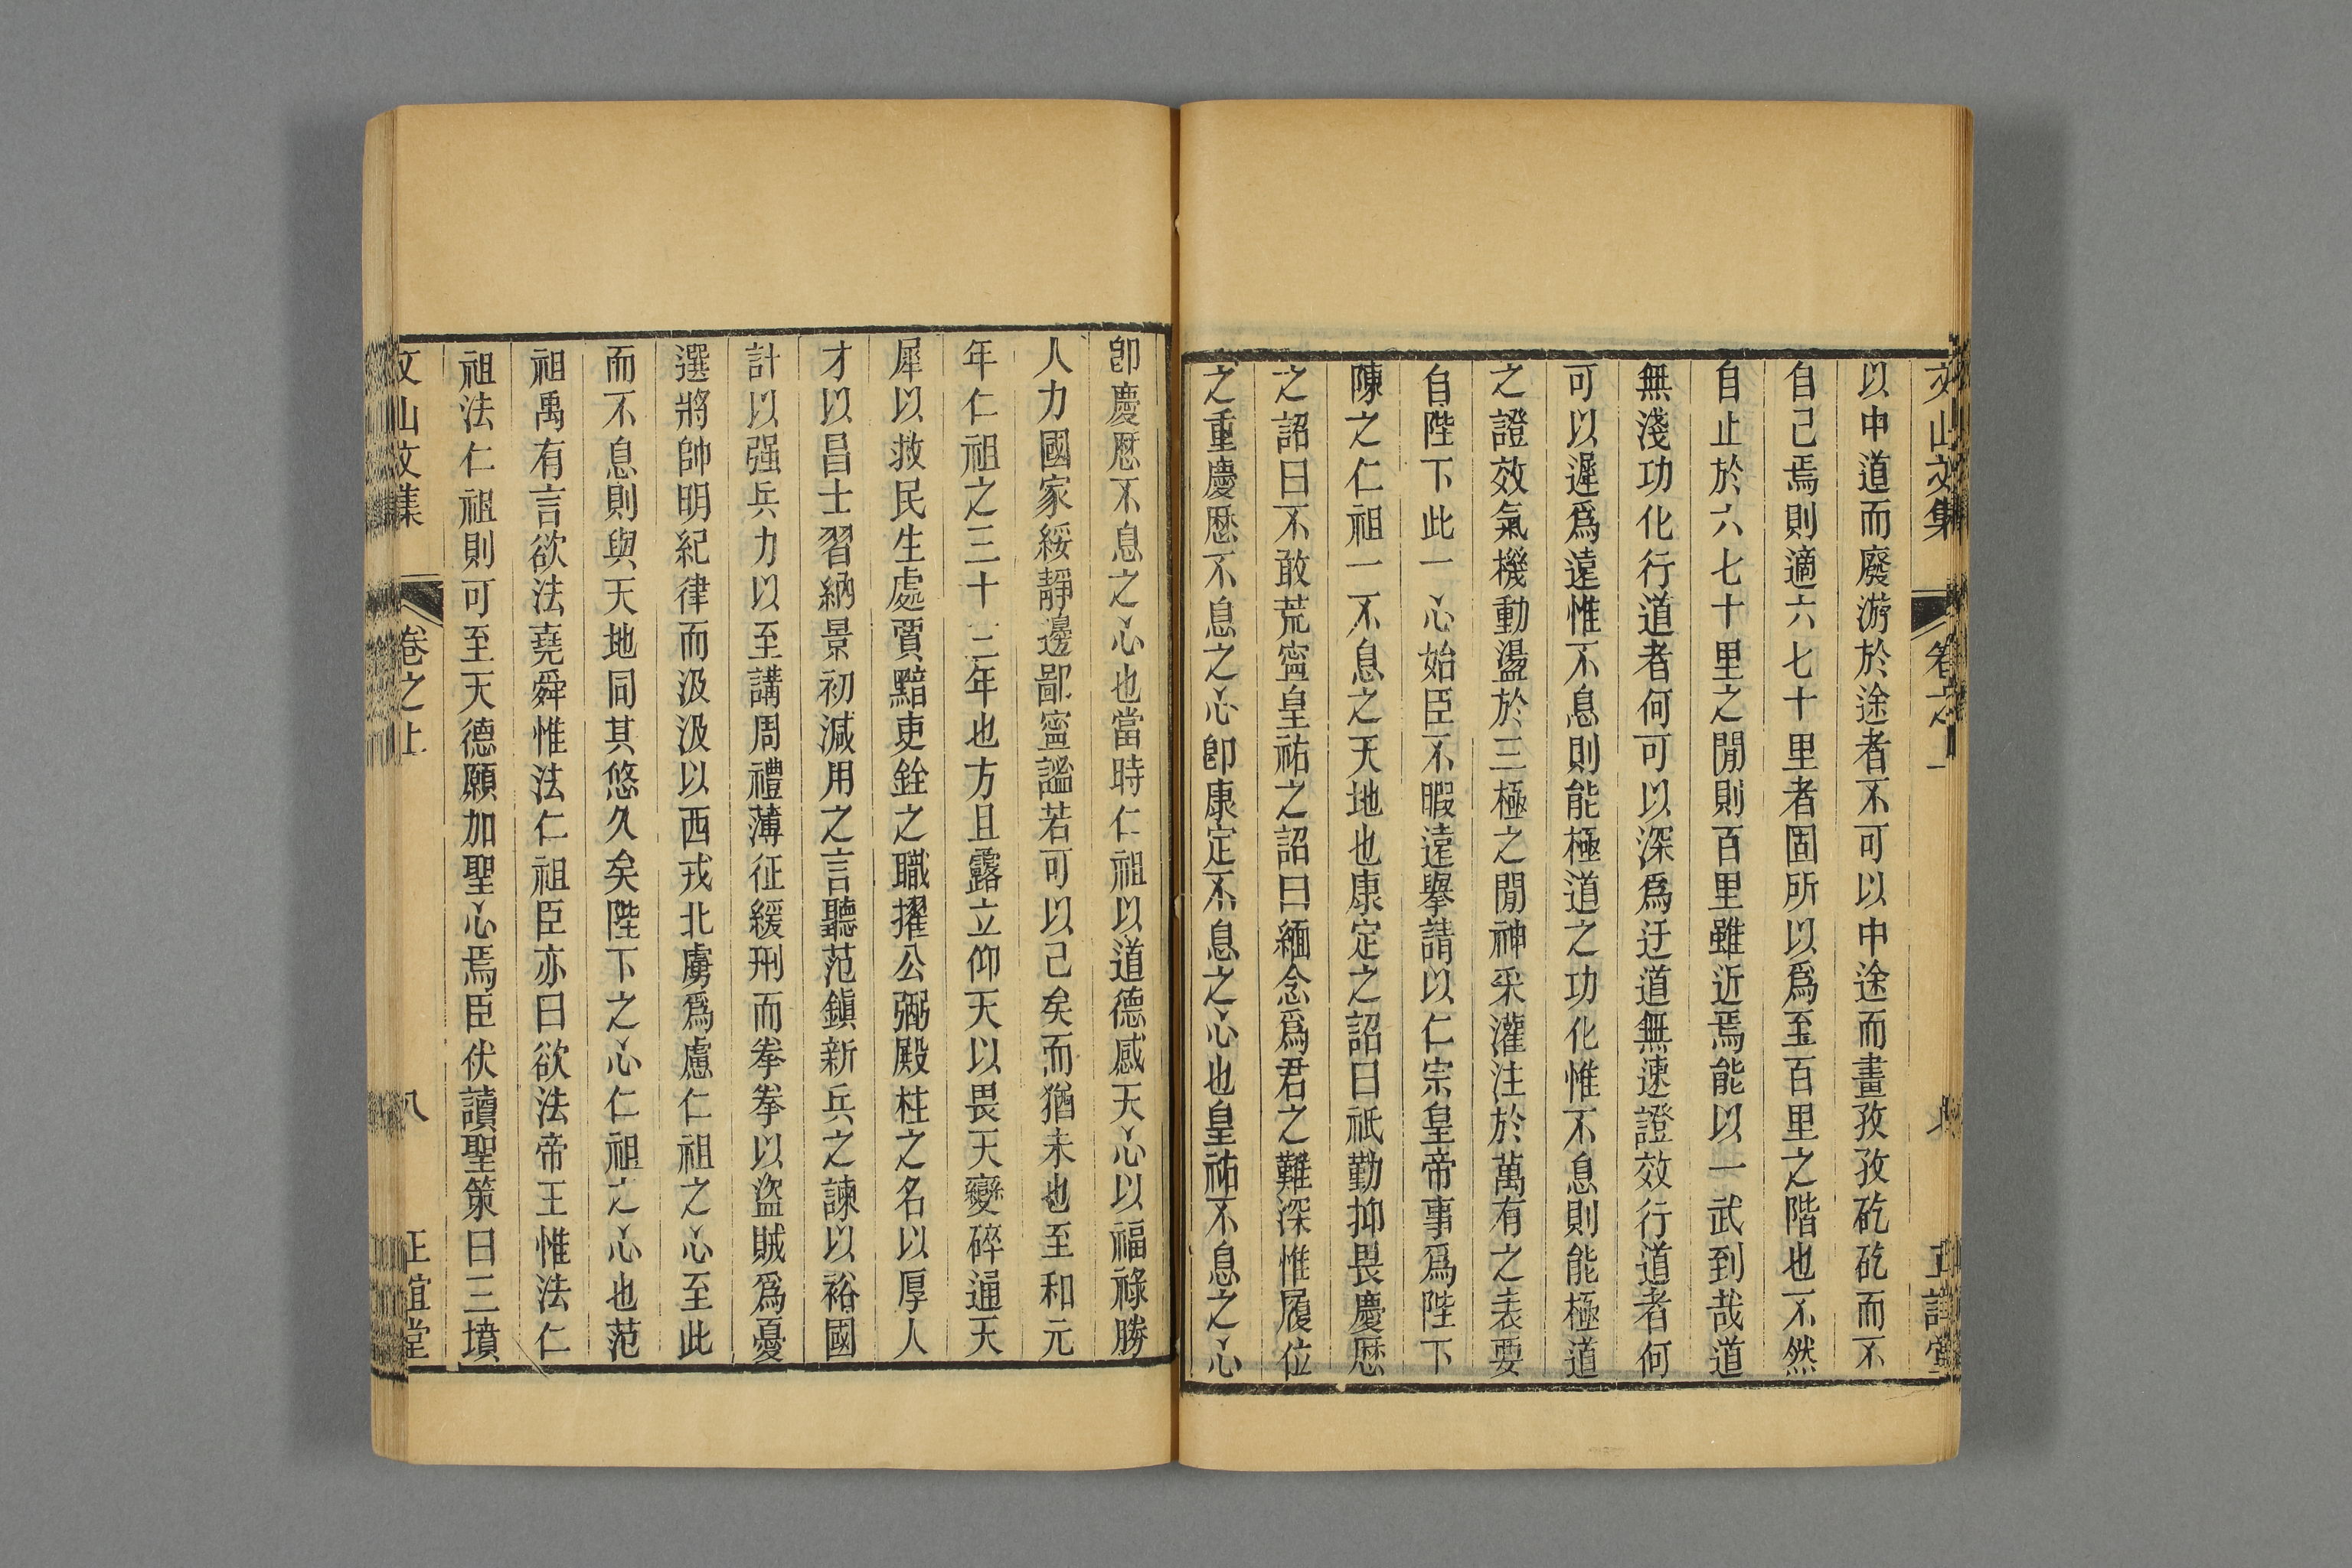 文山文集 卷之上 正誼堂
以中道而廢游於途者不可以中途而畫孜孜矻矻而不
自己焉則適六七十里者固所以爲至百里之階也不然
自止於六七十里之閒則百里雖近焉能以一武到哉道
無淺功化行道者何可以深爲迂道無速證效行道者何
可以遲爲遠惟不息則能極道之功化惟不息則能極道
之證效氣機動盪於三極之閒神采灌注於萬有之表要
自陛下此一心始臣不暇遠舉請以仁宗皇帝事爲陛下
陳之仁祖一不息之天地也康定之詔曰祇勤抑畏慶厯
之詔曰不敢荒寧皇祐之詔曰緬念爲君之難深惟履位
之重慶厯不息之心卽康定不息之心也皇祐不息之心
卽慶厯不息之心也當時仁祖以道德感天心以福祿勝
人力國家綏靜邊鄙寧謐若可以已矣而猶未也至和元
年仁祖之三十三年也方且露立仰天以畏天變碎通天
犀以救民生處賈黯吏銓之職擢公弼殿柱之名以厚人
才以昌士習納景初減用之言聽范鎮新兵之諫以裕國
計以强兵力以至講周禮薄征緩刑而拳拳以盜賊爲憂
選將帥明紀律而汲汲以西戎北虜爲慮仁祖之心至此
而不息則與天地同其悠久矣陛下之心仁祖之心也范
祖禹有言欲法堯舜惟法仁祖臣亦曰欲法帝王惟法仁
祖法仁祖則可至天德願加聖心焉臣伏讀聖策曰三墳
文山文集 卷之上 八 正誼堂